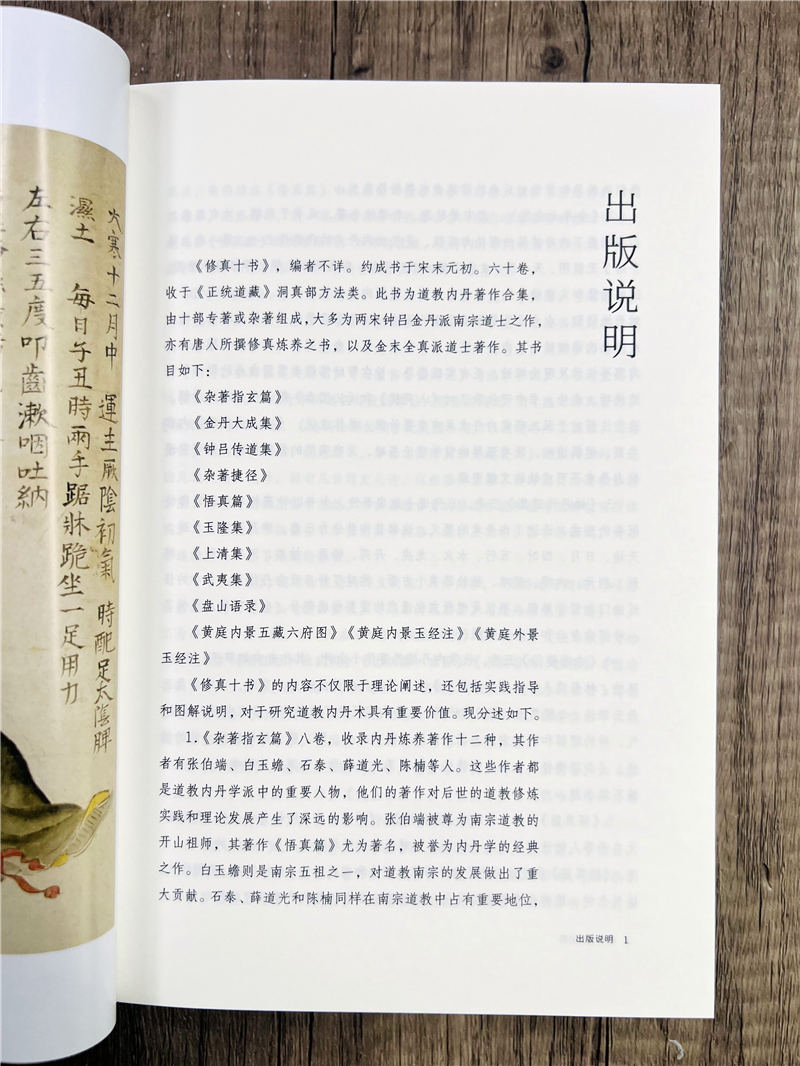 出版说明
《修真十书》，编者不详。约成书于宋末元初。六十卷，
收于《正统道藏》洞真部方法类。此书为道教内丹著作合集，
由十部专著或杂著组成，大多为两宋钟吕金丹派南宗道士之作，
亦有唐人所撰修真炼养之书，以及金末全真派道士著作。其书
目如下：
《杂著指玄篇》
《金丹大成集》
《钟吕传道集》
《杂著捷径》
《悟真篇》
《玉隆集》
《上清集》
《武夷集》
《盘山语录》
《黄庭内景五藏六府图》《黄庭内景玉经注》《黄庭外景
玉经注》
《修真十书》的内容不仅限于理论阐述，还包括实践指导
和图解说明，对于研究道教内丹术具有重要价值。现分述如下。
1.《杂著指玄篇》八卷，收录内丹炼养著作十二种，其作
者有张伯端、白玉蟾、石泰、薛道光、陈楠等人。这些作者都
是道教内丹学派中的重要人物，他们的著作对后世的道教修炼
实践和理论发展产生了深远的影响。张伯端被尊为南宗道教的
开山祖师，其著作《悟真篇》尤为著名，被誉为内丹学的经典
之作。白玉蟾则是南宗五祖之一，对道教南宗的发展做出了重
大贡献。石泰、薛道光和陈楠同样在南宗道教中占有重要地位，
出版说明 1
大寒十二月中 運主厥陰初氣 時配足太陰脾
濕土 每日子丑時兩手踞牀跪坐一足用力
左右三五度叩齒漱咽吐納